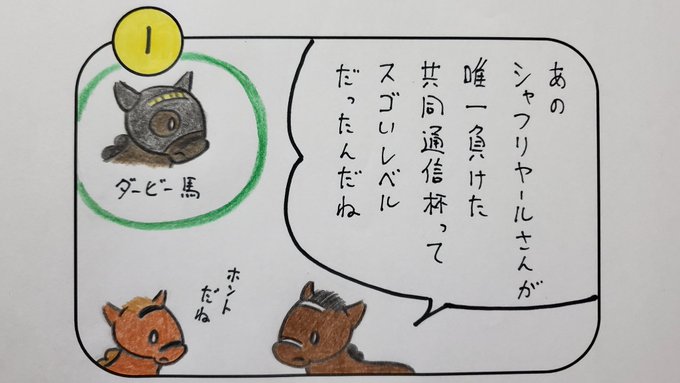 1
あの
シャフリヤールさんが
唯一負けた
共同通信杯って
スゴいレベル
だったんだね
ダービー馬
ホント
だね